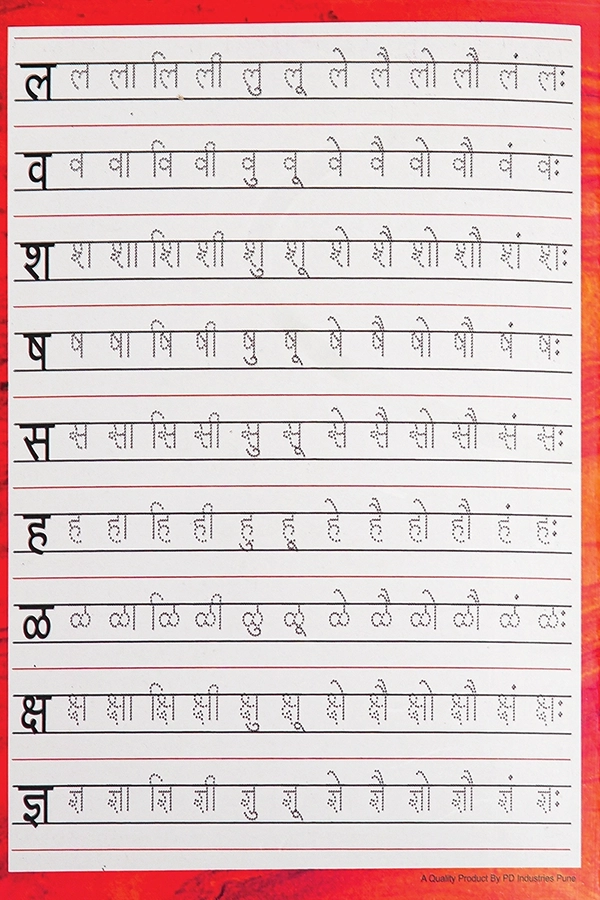 ल ल ला लि ली लु लू ले लै लो लौ लं लः
व व वा वि वी वु वू वे वै वो वौ वं वः
श श शा शि शी शु शू शे शै शो शौ शं शः
ष ष षा षि षी षु षू षे षै षो षौ षं षः
स स सा सि सी सु सू से सै सो सौ सं सः
ह ह हा हि ही हु हू हे है हो हौ हं हः
ळ ळ ळा ळि ळी ळु ळू ळे ळै ळो ळौ ळं ळः
क्ष क्ष क्षा क्षि क्षी क्षु क्षू क्षे क्षै क्षो क्षौ क्षं क्षः
ज्ञ ज्ञ ज्ञा ज्ञि ज्ञी ज्ञु ज्ञू ज्ञे ज्ञै ज्ञो ज्ञौ ज्ञं ज्ञः
A Quality Product By PD Industries Pune